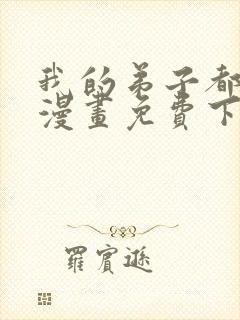 我的弟子都
漫畫免費下
羅賓遜